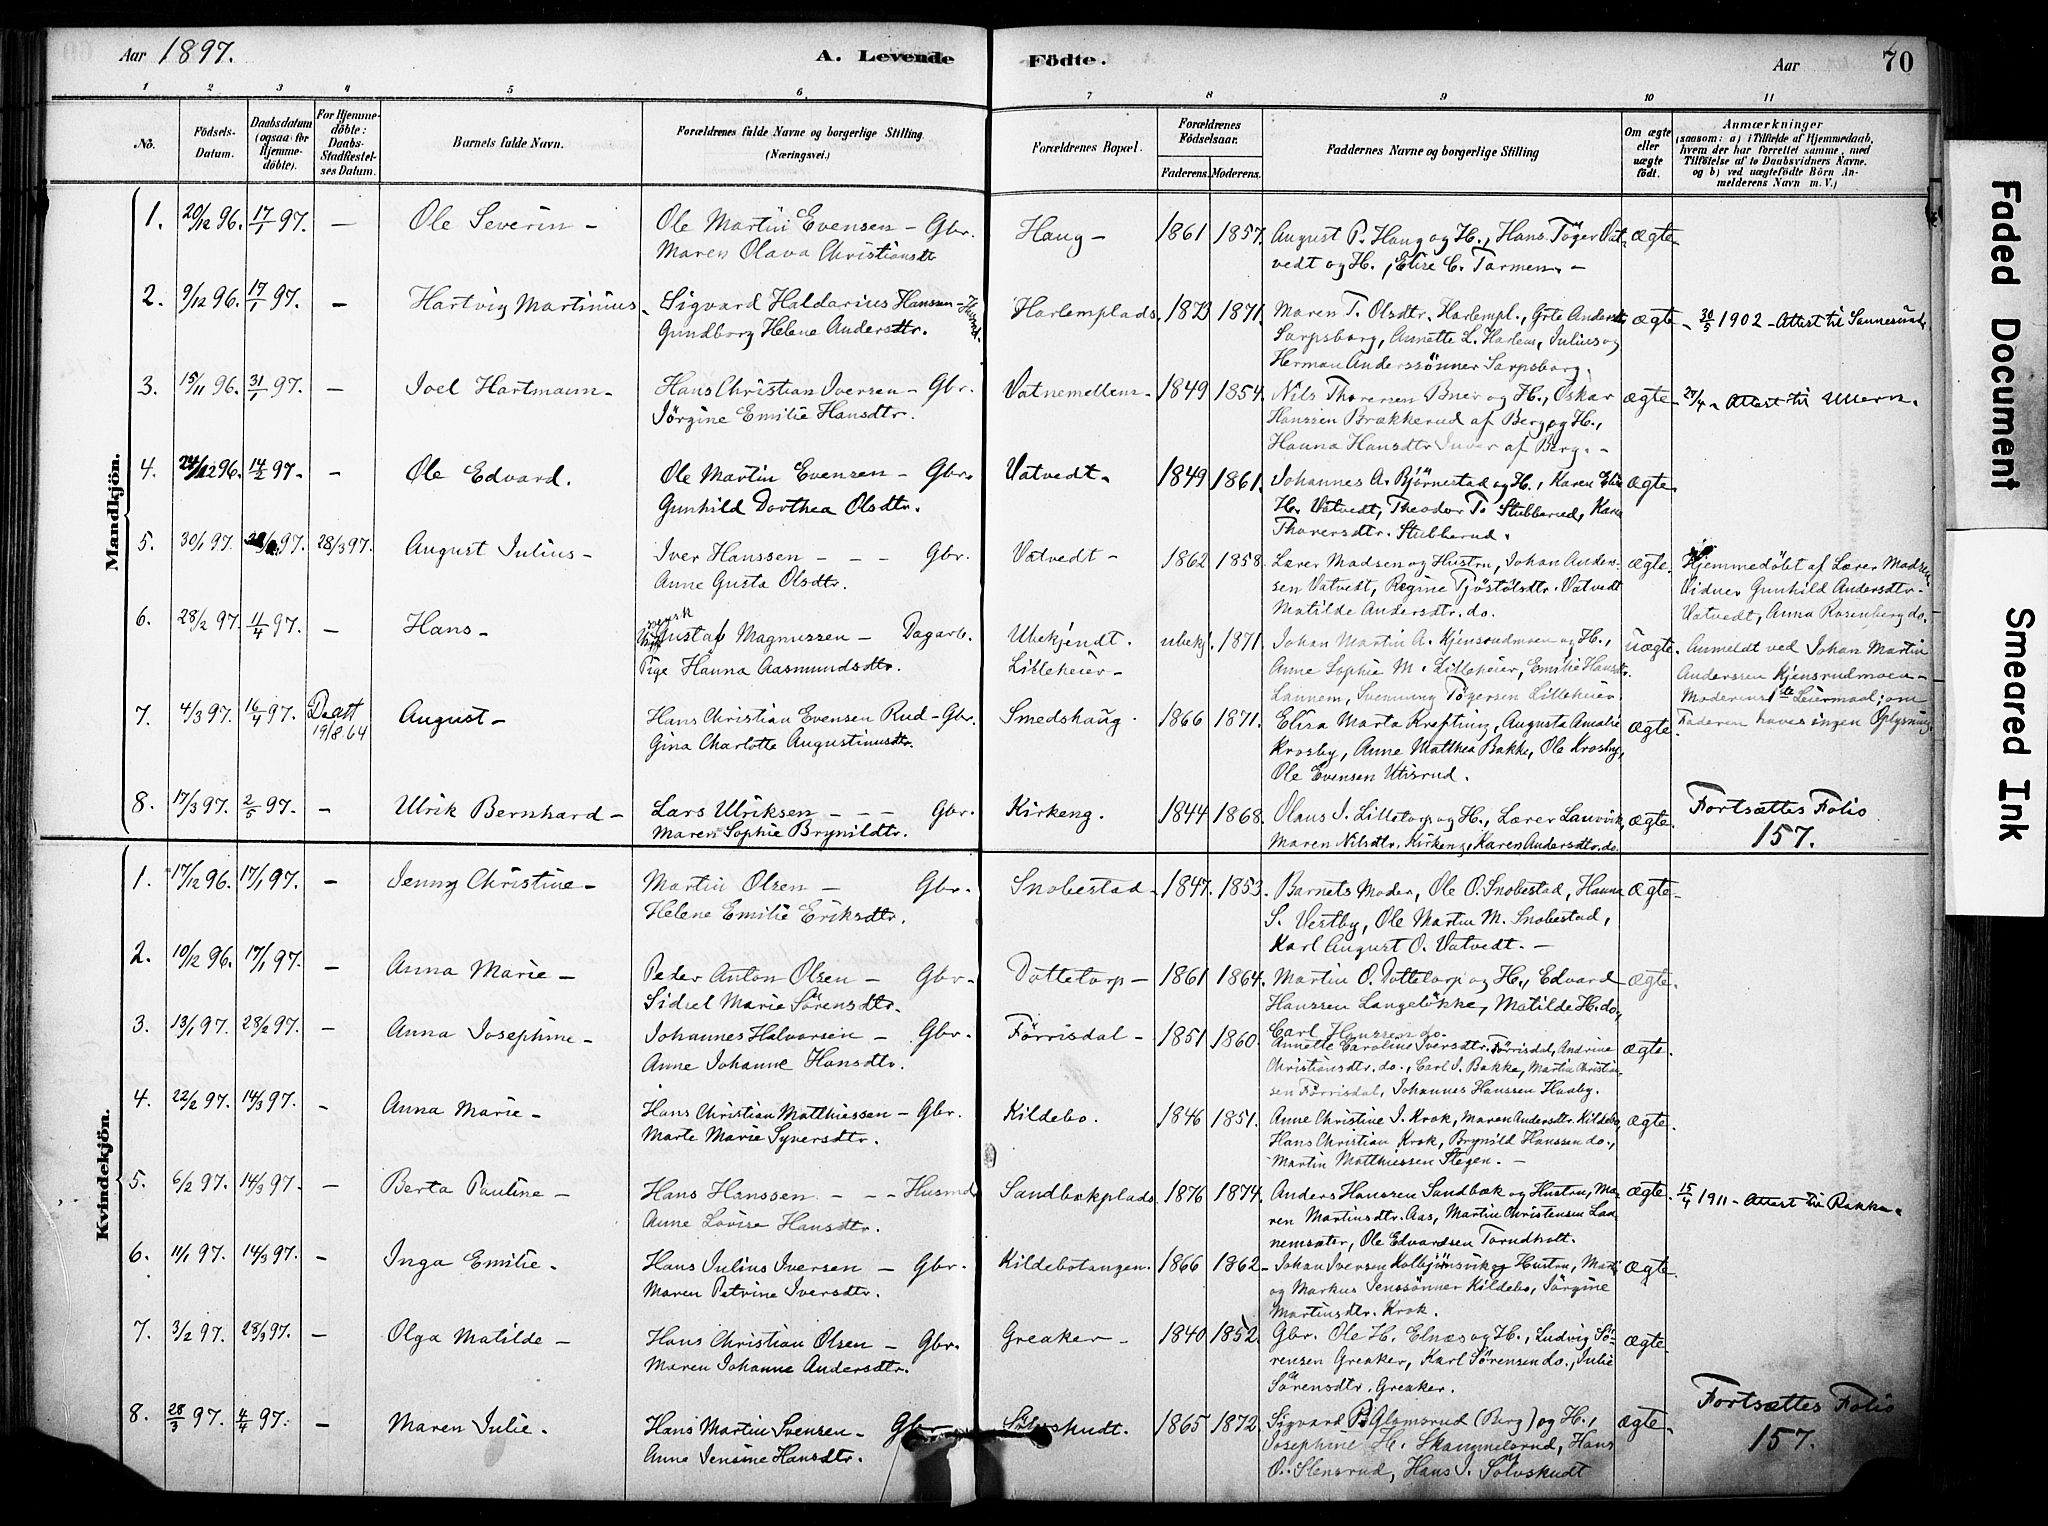 Aar 1897. A. Levende Födte. Aar 70
1 2 3 4 5 6. 7 8 9 10 11
No.
Födsels-Datum.
Daabsdatum (ogsaa for Hjemmedöbte).
For Hjemmedöbte: Daabs-Stadfæstelses Datum.
Barnets fulde Navn.
Forældrenes fulde Navne og borgerlige Stilling (Næringsvei.)
Forældrenes Bopæl.
Forældrenes Födselsaar.
Faderens. Moderens.
Faddernes Navne og borgerlige Stilling
Om ægte eller uægte födt.
Anmærkninger
(saasom: a) i Tilfælde af Hjemmedaab,
hvem der har forrettet samme, med
Tilföielse af to Daabsvidners Navne.
og b) ved uægtefödte Börn An-
melderens Navn m. V.)
Mandkjön.
1. 20/12 96. 17/1 97. — Ole Severin – Ole Martin Evensen – Gbr. Haug – 1861 1857. August P. Haug og H., Hans Töger Vat- ægte
Maren Olava Christiansdtr vedt og H., Elise C. Tormen. –
2. 9/12 96. 17/1 97. – Hartvig Martinius. Sigvard Haldarius Hanssen – Husmd. Harlemplads. 1873 1871. Maren T. Olsdtr. Harlempl., Grte Andersdtr ægte – 30/5 1902 – Attest til Sannesund
Gundborg Helene Andersdtr. Sarpsborg, Annette L. Harlem, Julius og
Herman Anderssönner Sarpsborg.
3. 15/11 96. 31/1 97. – Joel Hartmann – Hans Christian Iversen – Gbr. Vatnemellem – 1849 1854. Nils Thoresen Buer og H., Oskar ægte – 27/4 – Attest til Ullern.
Jörgine Emilie Hansdtr. Hanssen Brækkerud af Berg og H.,
Hanna Hansdtr Juver af Berg. –
4. 24/12 96. 14/2 97. – Ole Edvard. Ole Martin Evensen – Gbr. Vatvedt. 1849 1861. Johannes A. Bjørnestad og H., Karen Elise ægte
Gunhild Dorthea Olsdtr. H. Vatvedt, Theodor T. Stubberud, Karen
Thoresdtr. Stubberud.
5. 30/1 97. 97. 28/3 97. August Julius – Iver Hanssen – – – Gbr. Vatvedt – 1862 1858. Lærer Madsen og Hustru, Johan Ander- ægte. Hjemmedöbt af Lærer Madsen
Anne Gusta Olsdtr. sen Vatvedt, Regine Tjöstölsdtr. Vatvedt Vidner Gunhild Andersdtr.
Matilde Andersdtr. do. Vatvedt, Anna Rosenberg do. –
6. 28/2 97. 11/4 97. – Hans – Gustaf Magnussen – Dagarb. Ubekjendt. ubekj. 1871. Johan Martin A. Kjensrudmoen og H., uægte. Anmeldt ved Johan Martin
Pige Hanna Aasmundsdtr. Lilleheier – Anne Sophie M. Lilleheier, Emilie Hansdtr. Anderssen Kjensrudmoen –
Lannem, Svenning Tögersen Lilleheier Moderens 1ste Leiermaal; om
7. 4/3 97. 16/4 97. Deatt 19/8 64 August – Hans Christian Evensen Rud – Gbr. Smedshaug. 1866 1871. Elisa Marta Krefting, Augusta Amalie ægte. Faderen haves ingen Oplysning
Gina Charlotte Augustinusdtr. Krosby, Anne Matthea Bakke, Ole Krosby,
Ole Evensen Utisrud.
8. 17/3 97. 2/5 97. – Ulrik Bernhard – Lars Ulriksen – – – Gbr. Kirkeng. 1844 1868. Olaus J. Lilletorp og H., Lærer Lauvik, ægte. Fortsættes Folio
Maren Sophie Brynildtr. Maren Nilsdtr. Kirkeng, Karen Andersdtr. do. 157.
Kvindekjön.
1. 17/12 96. 17/1 97. – Jenny Christine – Martin Olsen – Gbr. Snobestad – 1847. 1853. Barnets Moder, Ole O. Snobestad, Hanna ægte –
Helene Emilie Eriksdtr. S. Vestby, Ole Martin M. Snobestad,
Karl August O. Vatvedt. –
2. 10/12 96. 17/1 97. – Anna Marie – Peder Anton Olsen – Gbr – Dottetorp – 1861 1864. Martin O. Dottetorp og H., Edvard ægte.
Sidsel Marie Sörensdtr. Hanssen Langelökke, Matilde H. do.,
Carl Hanssen do.
3. 13/1 97. 28/2 97. – Anna Josephine – Johannes Halvorsen – Gbr. Förrisdal – 1851 1860. Annette Caroline Iversdtr. Förrisdal, Andrine ægte.
Anne Johanne Hansdtr. Christiansdtr. do., Carl J. Bakke, Martin Christian-
sen Förrisdal, Johannes Hanssen Haaby.
4. 22/2 97. 14/3 97. – Anna Marie – Hans Christian Matthiessen – Gbr. Kildebo. 1846 1851. Anne Christine J. Krok, Maren Andersdtr. Kildebo, ægte.
Marte Marie Syversdtr. Hans Christian Krok, Brynild Hanssen do.,
Martin Matthiessen Stegen. –
5. 6/2 97. 14/3 97. – Berta Pauline – Hans Hanssen – – – Husmd. Sandbækplads. 1876 1874. Anders Hanssen Sandbæk og Hustru, Ma- ægte. 15/4 1911 – Attest til Rakke.
Anne Lovise Hansdtr. ren Martinsdtr. Aas, Martin Christensen Lan-
nemsæter, Ole Edvardsen Torndholt.
6. 11/1 97. 14/3 97. – Inga Emilie. Hans Julius Iversen – Gbr. Kildebotangen. 1866 1862 – Johan Iversen Kolbjörnsvik og Hustru, ægte.
Maren Petrine Iversdtr. og Markus Jenssönner Kildebo, Jörgine
Martinsdtr. Krok.
7. 3/2 97. 28/3 97. – Olga Matilde – Hans Christian Olsen – Gbr. Greaker – 1840 1852. Gbr. Ole H. Elnæs og H., Ludvig Sö- ægte.
Maren Johanne Andersdtr. rensen Greaker, Karl Sörensen do., Julie
Sörensdtr. Greaker.
8. 28/3 97. 4/4 97. – Maren Julie. Hans Martin Svensen – Gbr – Sölvskudt. 1865 1872. Sigvard P. Glomsrud (Berg) og H., ægte. Fortsættes Folio
Anne Jensine Hansdtr. Josephine H. Skammelsrud, Hans 157.
O. Stensrud, Hans J. Sölvskudt
Faded Document
Smeared Ink